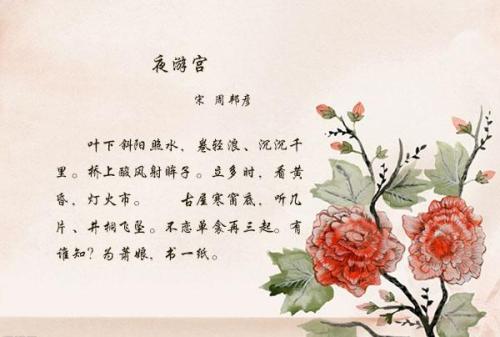 夜游宫
宋 周邦彦
叶下斜阳照水，卷轻浪、沉沉千
里。桥上酸风射眸子。立多时，看黄
昏，灯火市。 古屋寒窗底，听几
片、井桐飞坠。不恋单衾再三起。有
谁知？为萧娘，书一纸。